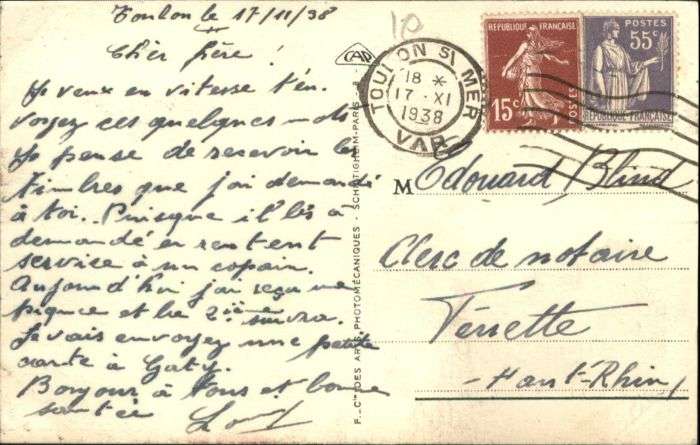 Toulon le 17/11/38
Cher frère !
Je veux en vitesse t'en.
voyez ces quelques-ds
Je pense de recevoir les
timbres que j'ai demandé
à toi.. Puisque il lés à
demandé en rentent
service à un copain.
Aujourd'hui j'ai reçu une
piquee et la 2ième suivra.
Je vais envoyez une petite
carte à Gaty.
Bonjour à tous et bonne
santée
CAP
F. - Cie DES ARTS PHOTOMÉCANIQUES - SCHILTIGHEIM-PARIS
TOULON S/ MER
18 *
17 - XI
1938
VAR
REPUBLIQUE FRANÇAISE
15c
POSTES
POSTES
55c
REPUBLIQUE FRANÇAISE
M Edouard Blind
Clerc de notaire
Ferrette
- Haut-Rhin